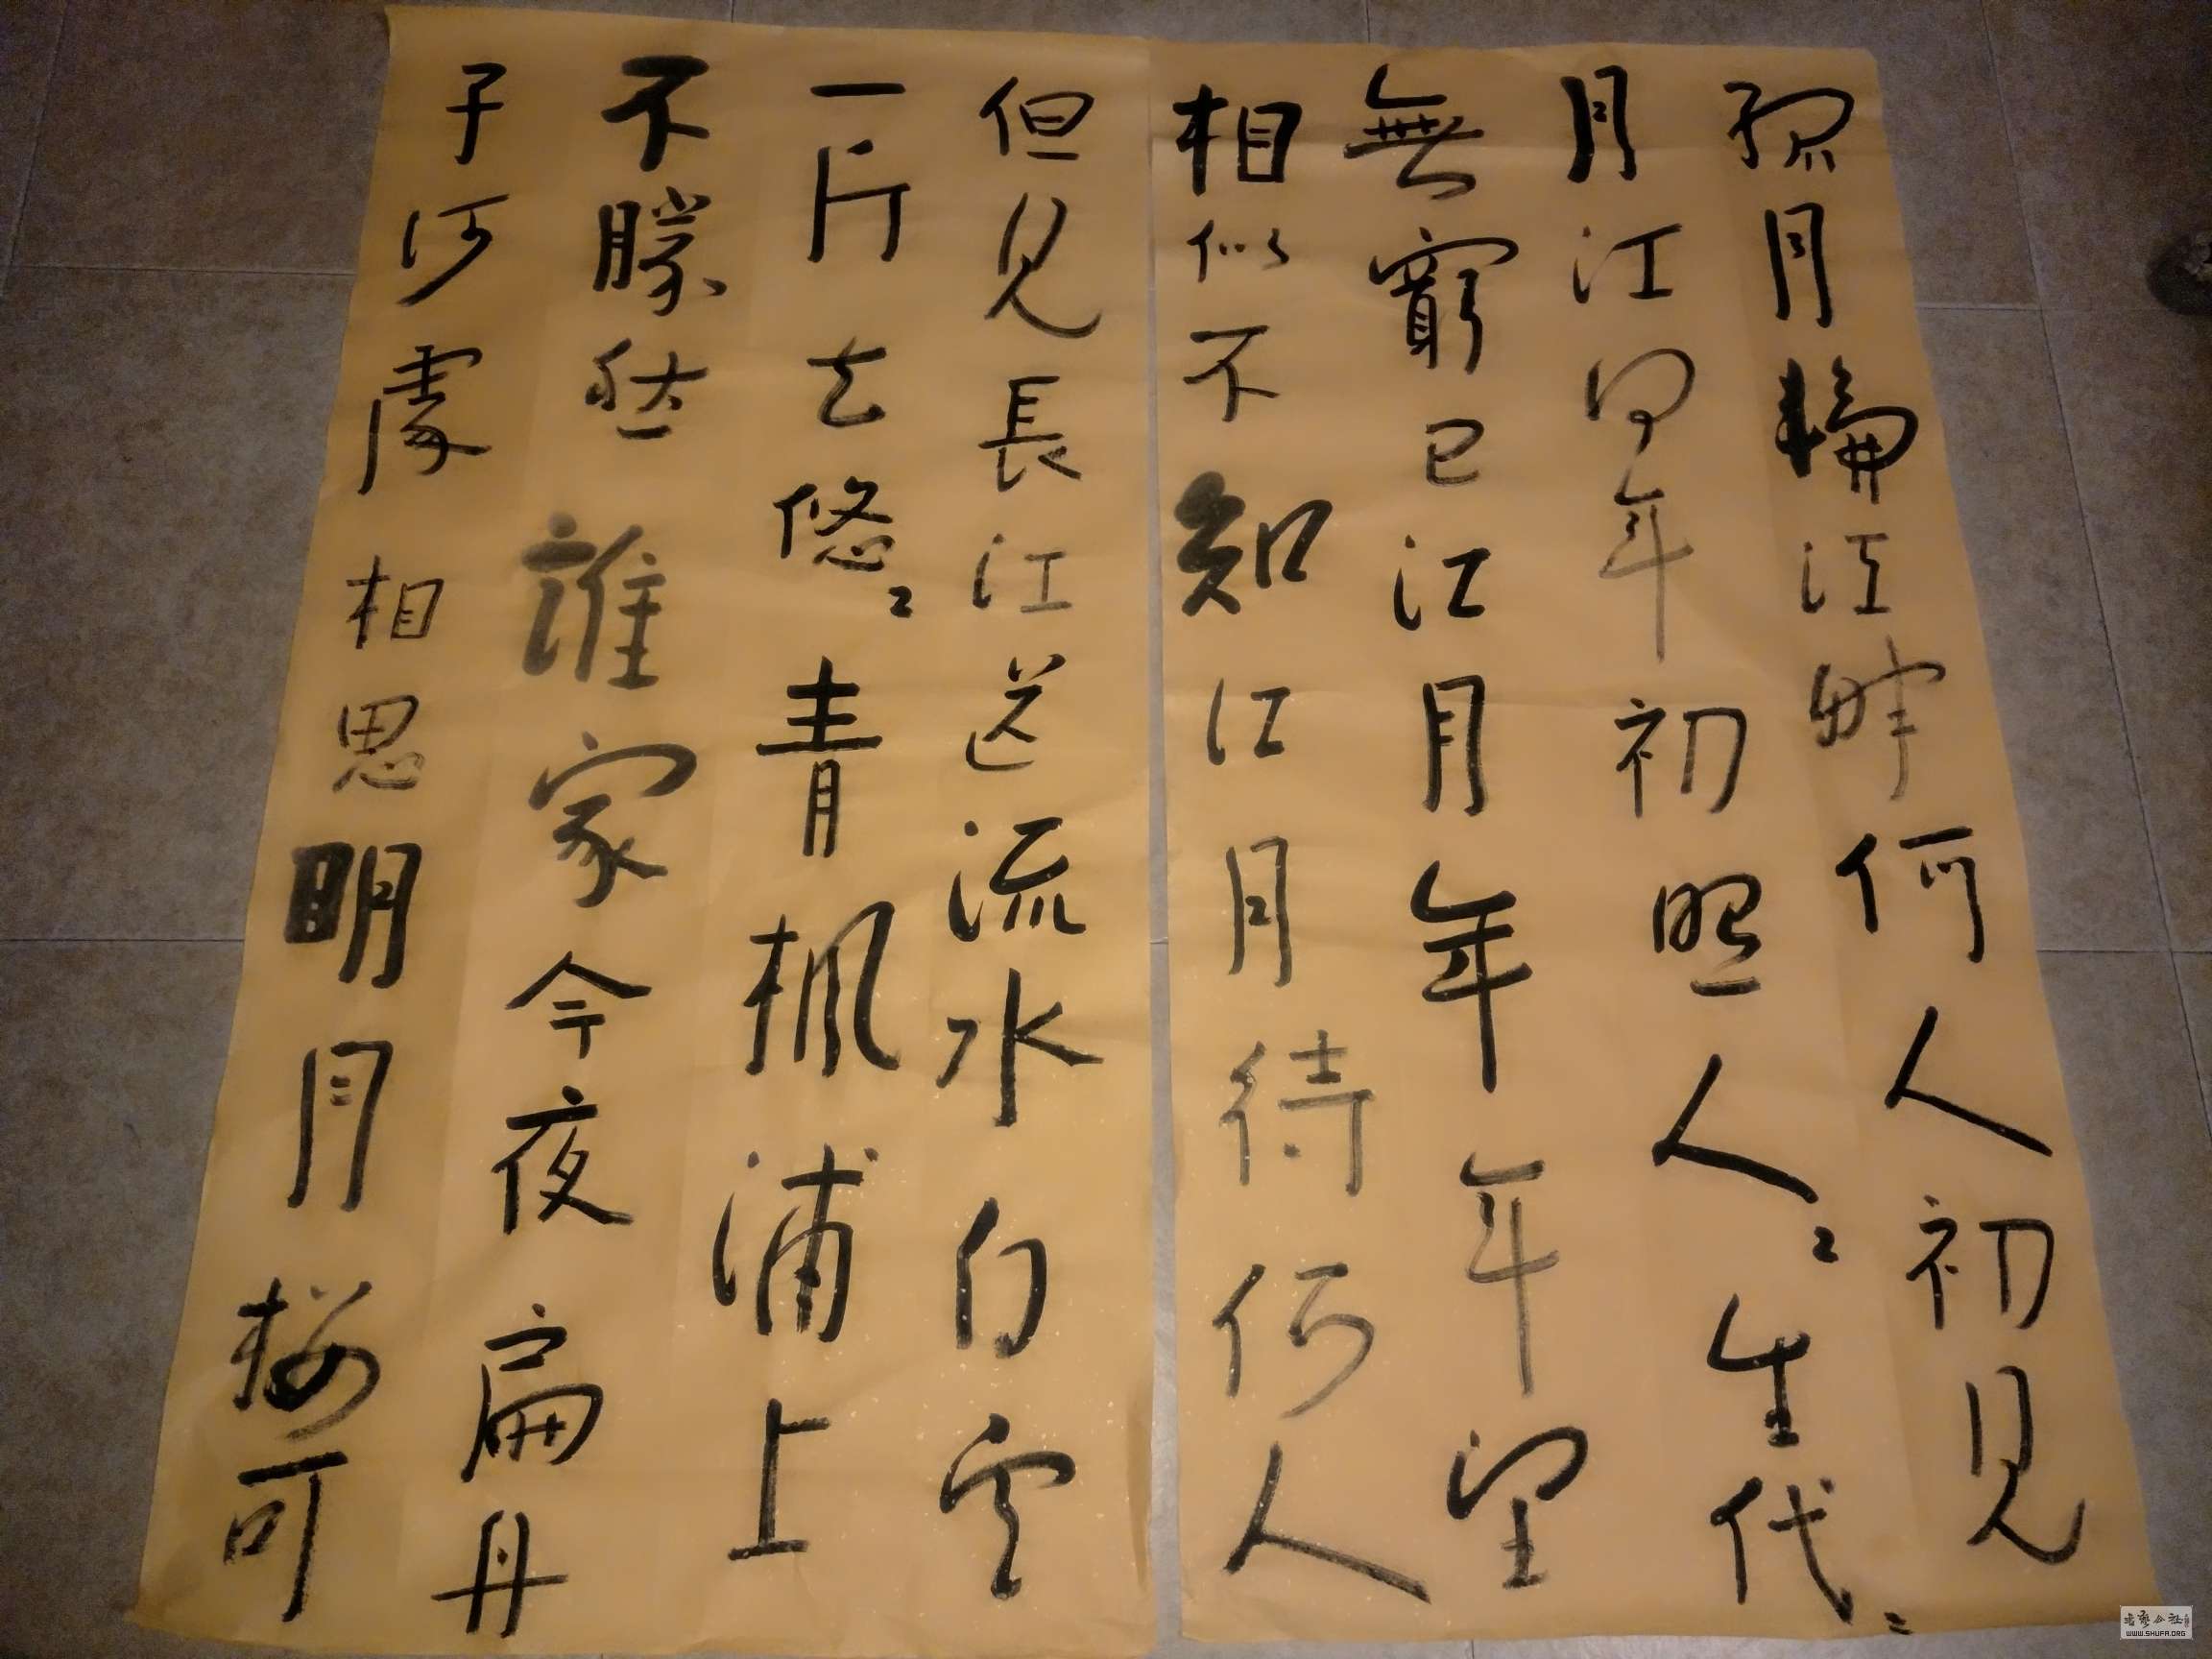 孤月輪江畔何人初見
月江何年初照人〻生代〻
無窮已江月年年望
相似不知江月待何人
但見長江送流水白雲
一片去悠〻青楓浦上
不勝愁誰家今夜扁舟
子何處相思明月楼可
WWW.SHUFA.ORG